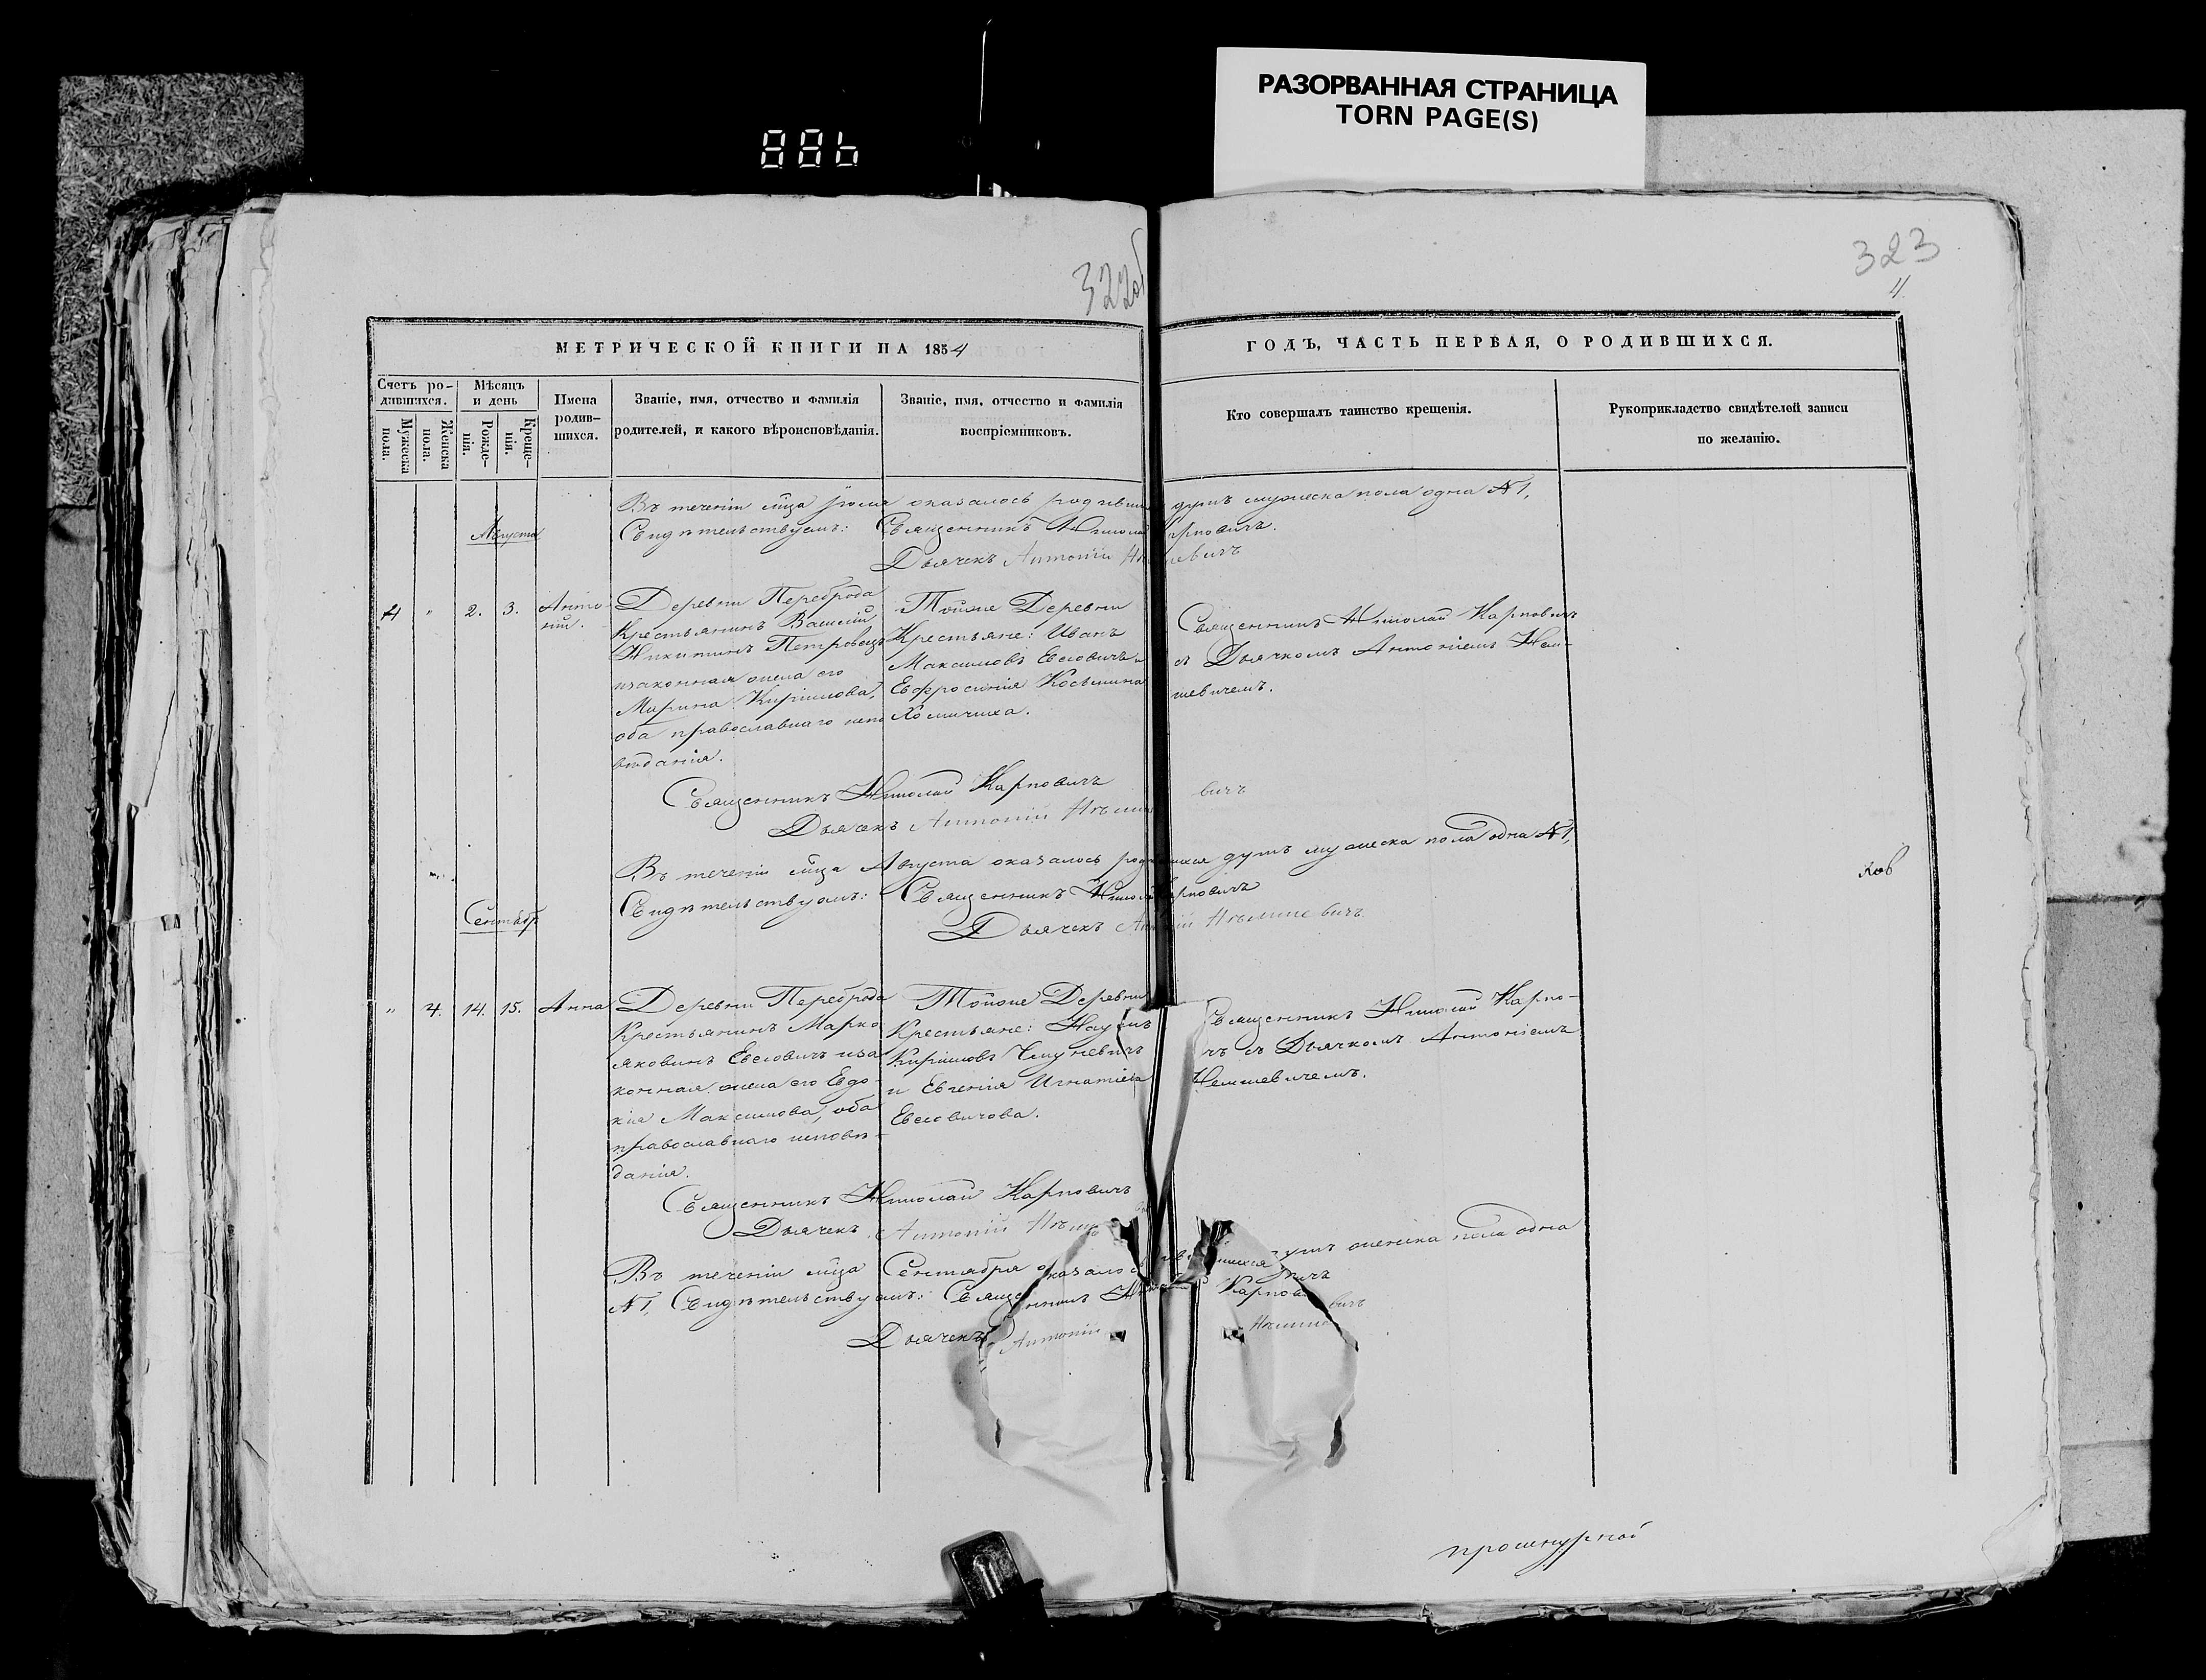 РАЗОРВАННАЯ СТРАНИЦА
TORN PAGE(S)
886
322об
323
4
МЕТРИЧЕСКОЙ КНИГИ НА 1854
ГОДЪ, ЧАСТЬ ПЕРВАЯ, О РОДИВШИХСЯ.
Счетъ ро-
дившихся.
Мужеска
пола.
Женска
пола.
Мѣсяцъ
и день
Рожде-
нія.
Креще-
нія.
Имена
родив-
шихся.
Званіе, имя, отчество и фамилія
родителей, и какого вѣроисповѣданія.
Званіе, имя, отчество и фамилія
воспріемниковъ.
Кто совершалъ таинство крещенія.
Рукоприкладство свидѣтелей записи
по желанію.
Въ теченіи мца Іюля оказалось родивши душъ мужеска пола одна №1,
Свидѣтельствуемъ: Священникъ Николай Карповичъ.
Дьячекъ Антоній
Августа
4 " 2. 3. Анто-
ній.
Деревни Переброда
Крестьянинъ Василій
Никитинъ Петровецъ
изаконная жена его
Марина Кирилова,
оба православнаго испо
вѣданія.
Тойже Деревни
Крестьяне: Иванъ
Максимовъ Евсовичъ и
Евфросинія Косьмина
Хомичиха.
Священникъ Николай Карповичъ
съ Дьячкомъ Антоніемъ Нем-
шевичемъ.
Священникъ Николай Карповичъ
Дьячекъ Антоній Нѣмше вичъ
Въ теченіи мца Августа оказалось родившихся душъ мужеска пола одна №1,
Свидѣтельствуемъ: Священникъ Николай Карповичъ
Дьячекъ Антоній Нѣмшевичъ
ков
Сентябр
" 4. 14. 15. Анна
Деревни Переброда
Крестьянинъ Марко
Яковинъ Евсовичъ иза
конная жена его Евдо-
кія Максимова, оба
православнаго исповѣ-
данія.
Тойже Деревни
Крестьяне: Наумъ
Кириловъ
и Евгенія Игнатіева
Евсовичова.
Священникъ Николай Карпо-
чъ съ Дьячкомъ Антоніемъ
Немшевичемъ.
Священникъ Николай Карповичъ
Дьячекъ Антоній
Въ теченіи мца Сентября оказалось душъ женска пола одна
№1, Свидѣтельствуемъ: Священникъ Николай Карповичъ
Дьячекъ Антоній Нѣмшевичъ
прошнурной